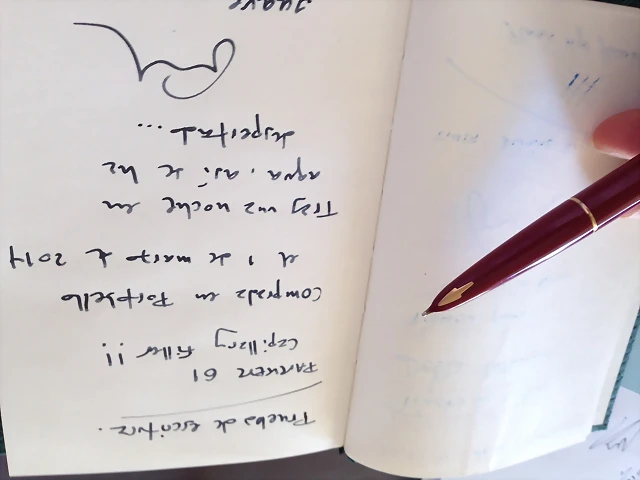 Prueba de escritura.
PARKER 61
Capillary Filler !!
Comprada en Portobello
el 1 de marzo de 2014
Tras una noche en
agua, así se ha
despertado ...
suave